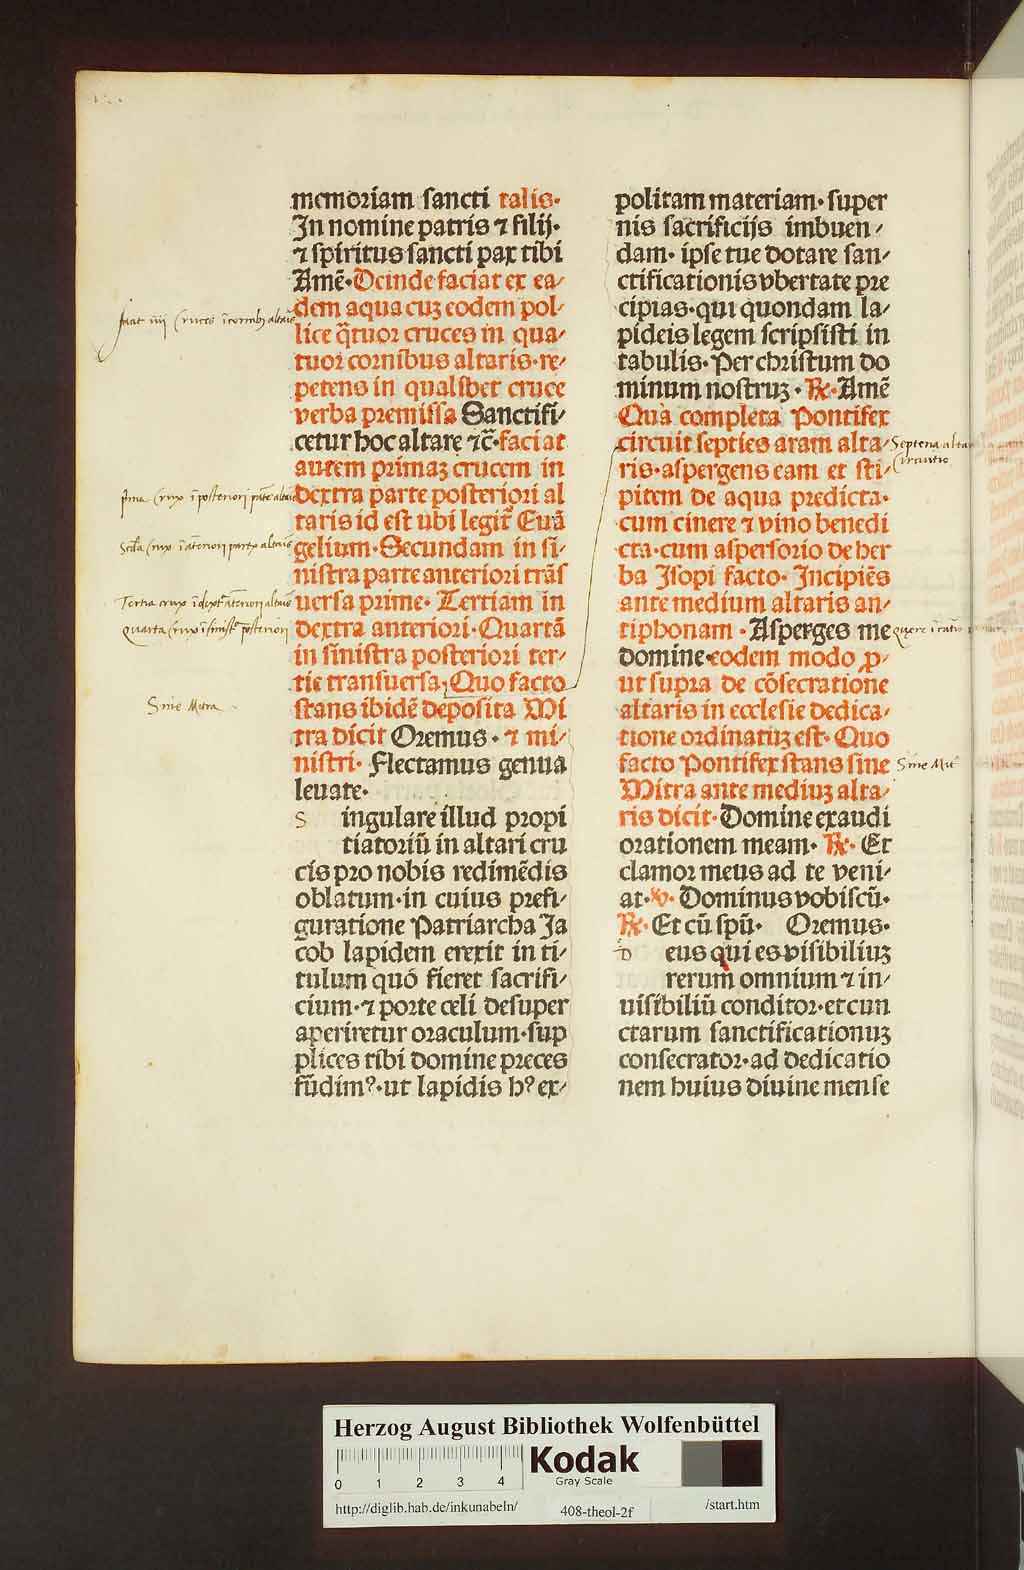 memoriam sancti talis·
In nomine patris ⁊ filij·
⁊ spiritus sancti pax tibi
Amē· Deinde faciat ex ea-
dem aqua cuʒ eodem pol-
lice q̄tuor cruces in qua-
tuor cornibus altaris· re-
petens in qualibet cruce
verba premissa Sanctifi-
cetur hoc altare ⁊c̄· faciat
autem primaʒ crucem in
dextra parte posteriori al
taris id est ubi legit̄ Euā
gelium· Secundam in si-
nistra parte anteriori trās
uersa prime· Tertiam in
dextra anteriori· Quartā
in sinistra posteriori ter-
tie transuersa, Quo facto
stans ibidē deposita Mi
tra dicit Oremus· ⁊ mi-
nistri· Flectamus genua
leuate·
S ingulare illud propi
tiatoriū in altari cru
cis pro nobis redimēdis
oblatum· in cuius prefi-
guratione Patriarcha Ja
cob lapidem erexit in ti-
tulum quō fieret sacrifi-
cium· ⁊ porte celi desuper
aperiretur oraculum· sup
plices tibi domine preces
fūdimꝰ· ut lapidis hꝰ ex-
politam materiam· super
nis sacrificijs imbuen-
dam· ipse tue dotare san-
ctificationis vbertate pre
cipias· qui quondam la-
pideis legem scripsisti in
tabulis· Per christum do
minum nostruʒ· ℞· Amē
Qua completa Pontifex
circuit septies aram alta-
ris· aspergens eam et sti-
pitem de aqua predicta·
cum cinere ⁊ vino benedi
cta· cum aspersorio de her
ba Isopi facto· Incipiēs
ante medium altaris an-
tiphonam· Asperges me
domine· eodem modo ꝓ-
ut supra de cōsecratione
altaris in ecclesie dedica-
tione ordinatuʒ est· Quo
facto Pontifex stans sine
Mitra ante mediuʒ alta-
ris dicit· Domine exaudi
orationem meam· ℞· Et
clamor meus ad te veni-
at· ℣· Dominus vobiscū·
℞· Et cū spū· Oremus·
D eus qui es visibiliuʒ
rerum omnium ⁊ in-
uisibiliū conditor· et cun
ctarum sanctificationuʒ
consecrator· ad dedicatio
nem huius diuine mense
faciat iiii cruces
Sine Mitra
Septena
circuitio
Quere
Sine Mit
Herzog August Bibliothek Wolfenbüttel
0 1 2 3 4
Kodak
Gray Scale
http://diglib.hab.de/inkunabeln/
408-theol-2f
/start.htm